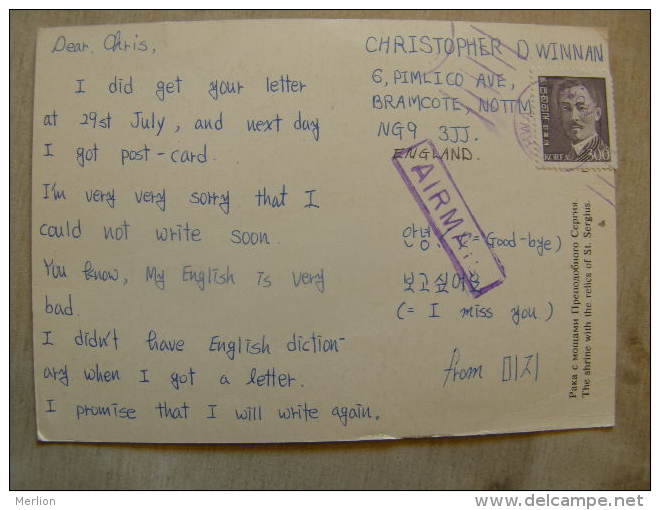 Dear. Chris,
I did get your letter
at 29st July, and next day
I got post-card.
I'm very very sorry that I
could not write soon.
You know, My English is very
bad.
I didn't have English diction-
ary when I got a letter.
I promise that I will write again.
CHRISTOPHER D WINNAN
6, PIMLICO AVE,
BRAMCOTE, NOTTM
NG9 3JJ.
ENGLAND.
KOREA 300
AIRMAIL
안녕 (= Good-bye)
보고싶어요
(= I miss you.)
from 미지
Рака с мощами Преподобного Сергия
The shrine with the relics of St. Sergius
Merlion
www.delcampe.net